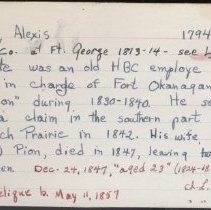 , Alexis 1794
Co. @ Ft. George 1813-14 - see L
te was an old HBC employe
in charge of Fort Okanagan
on" during 1830-1840. He se
a claim in the southern part
ch Prairie in 1842. His wife,
) Pion, died in 1847, leaving tw
en. Dec. 24, 1847, "aged 23" (1824-18
ch L
elique b. May 11, 1857